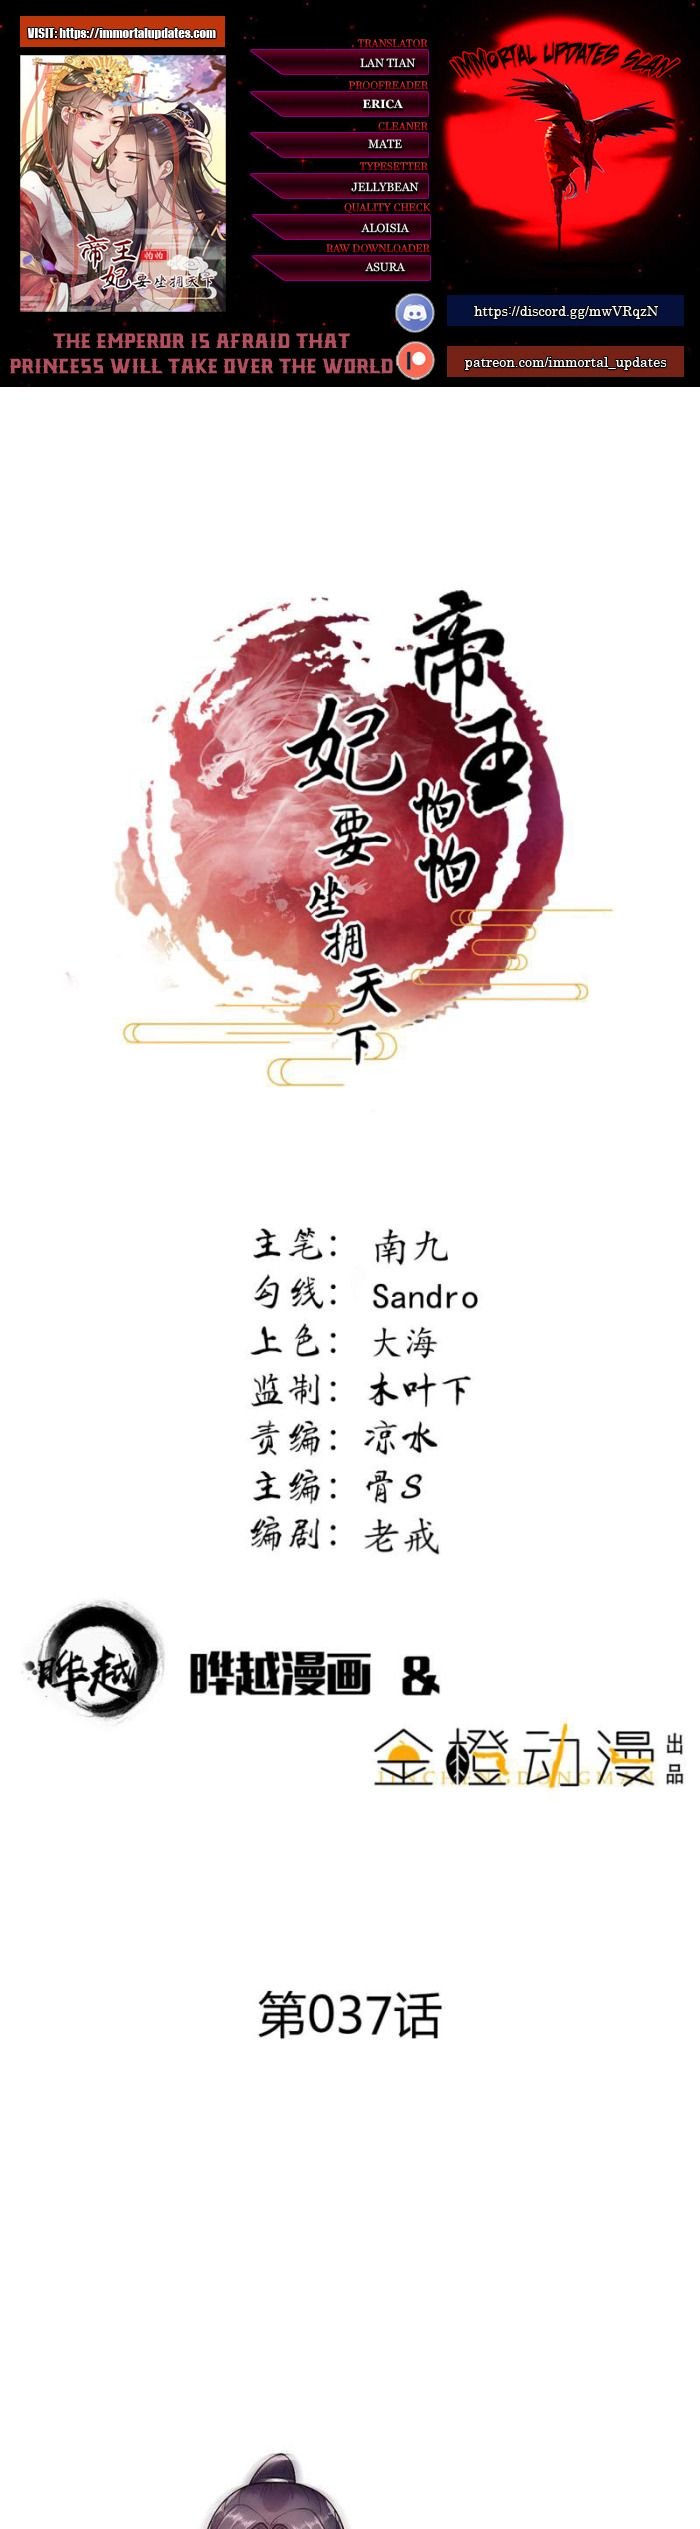 VISIT: https://immortalupdates.com
TRANSLATOR
LAN TIAN
PROOFREADER
ERICA
CLEANER
MATE
TYPESETTER
JELLYBEAN
QUALITY CHECK
ALOISIA
RAW DOWNLOADER
ASURA
IMMORTAL UPDATES SCAN
帝王
怕怕
妃要坐拥天下
https://discord.gg/mwVRqzN
patreon.com/immortal_updates
THE EMPEROR IS AFRAID THAT
PRINCESS WILL TAKE OVER THE WORLD
帝王
怕怕
妃要坐拥天下
主笔： 南九
勾线： Sandro
上色： 大海
监制： 木叶下
责编： 凉水
主编： 骨S
编剧： 老戒
晔越
晔越漫画 &
金橙动漫 出品
JINCHENGDONGMAN
第037话